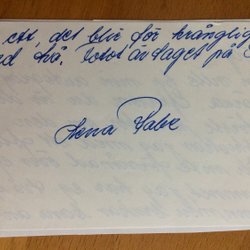 att, det blir för krånglig
med två. Fotot är taget på
Lena Pabe